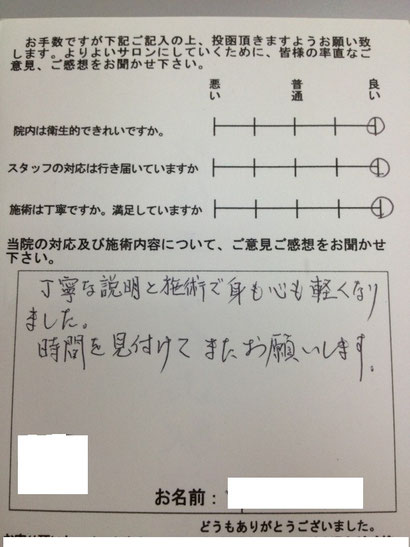 お手数ですが下記ご記入の上、投函頂きますようお願い致
します。よりよいサロンにしていくために、皆様の率直なご
意見、ご感想をお聞かせ下さい。
悪い 普通 良い
院内は衛生的できれいですか。
スタッフの対応は行き届いていますか
施術は丁寧ですか。満足していますか
当院の対応及び施術内容について、ご意見ご感想をお聞かせ
下さい。
丁寧な説明と施術で身も心も軽くなり
ました。
時間を見付けてまたお願いします。
お名前：
どうもありがとうございました。